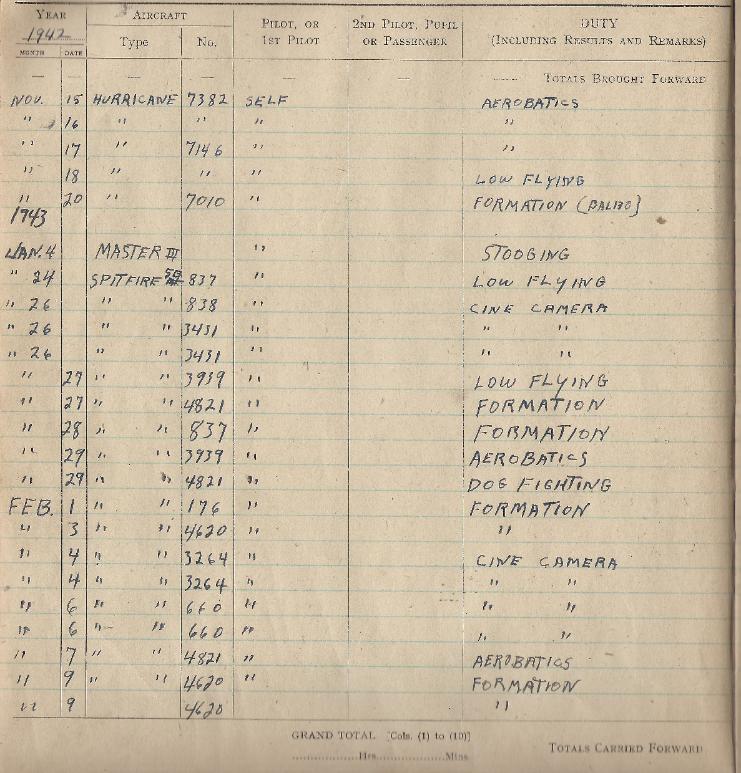 YEAR AIRCRAFT PILOT, OR 1ST PILOT 2ND PILOT, PUPIL OR PASSENGER DUTY (INCLUDING RESULTS AND REMARKS)
1942 Type No.
MONTH DATE
— — — — — —— TOTALS BROUGHT FORWARD
NOV. 15 HURRICANE 7382 SELF AEROBATICS
" 16 " " " "
" 17 " 7146 " "
" 18 " " " LOW FLYING
" 20 " 7010 " FORMATION (BALBO)
1943
JAN. 4 MASTER III " STOOGING
" 24 SPITFIRE 837 " LOW FLYING
" 26 " " 838 " CINE CAMERA
" 26 " " 3431 " " "
" 26 " " 3431 " " "
" 27 " " 3939 " LOW FLYING
" 27 " " 4821 " FORMATION
" 28 " " 837 " FORMATION
" 29 " " 3939 " AEROBATICS
" 29 " " 4821 " DOG FIGHTING
FEB. 1 " " 176 " FORMATION
" 3 " " 4620 " "
" 4 " " 3264 " CINE CAMERA
" 4 " " 3264 " " "
" 6 " " 660 " " "
" 6 " " 660 " " "
" 7 " " 4821 " AEROBATICS
" 9 " " 4620 " FORMATION
" 9 4620 "
GRAND TOTAL [Cols. (1) to (10)]
..............Hrs...............Mins. TOTALS CARRIED FORWARD